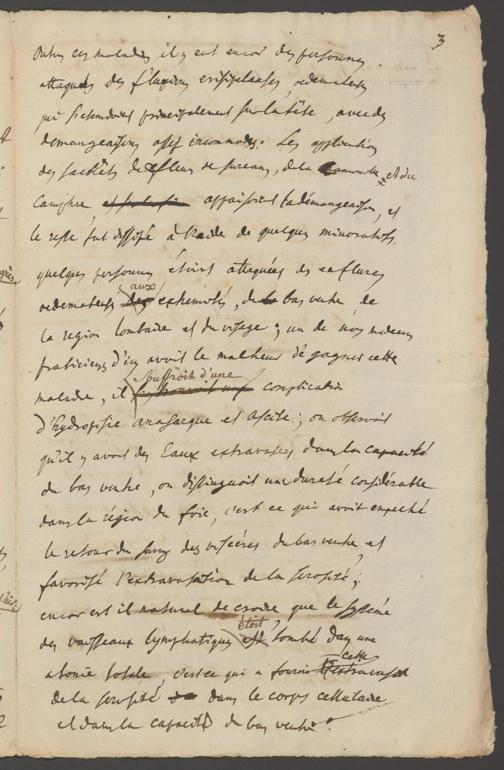 3
Outre ces maladies il y eut encor des personnes
attaquées des fluxions erisipelauses, oedemateuses
qui s'etendoient principalement sur la tête, avec des
demangeaisons assez incommodes. Les application
des sachets de fleurs de sureau, de la camomille, et du
camphre appaisoient la démangeaison, et
le reste fut dissipé à l'aide de quelques minoratifs.
quelques personnes étoient attaquées des enflures
oedemateuses aux extremités, du bas ventre, de
la region lombaire et du visage; un de nos medecins
praticiens d'ici avoit le malheur de gagner cette
maladie, il souffroit d'une complication
d'hydropisie anasarque et ascite; on observoit
qu'il y avoit des Eaux extravasées dans la capacité
du bas ventre, on distinguoit une dureté considérable
dans la région du foie, c'est ce qui avoit empeché
le retour du sang des viscéres du bas ventre et
favorisé l'extravasation de la serosité;
encor est il naturel de croire que le systéme
des vaisseaux lymphatiques étoit tombé dans une
atonie totale, c'est ce qui a fourni cette
de la serosité dans le corps cellulaire
et dans la capacité du bas ventre.